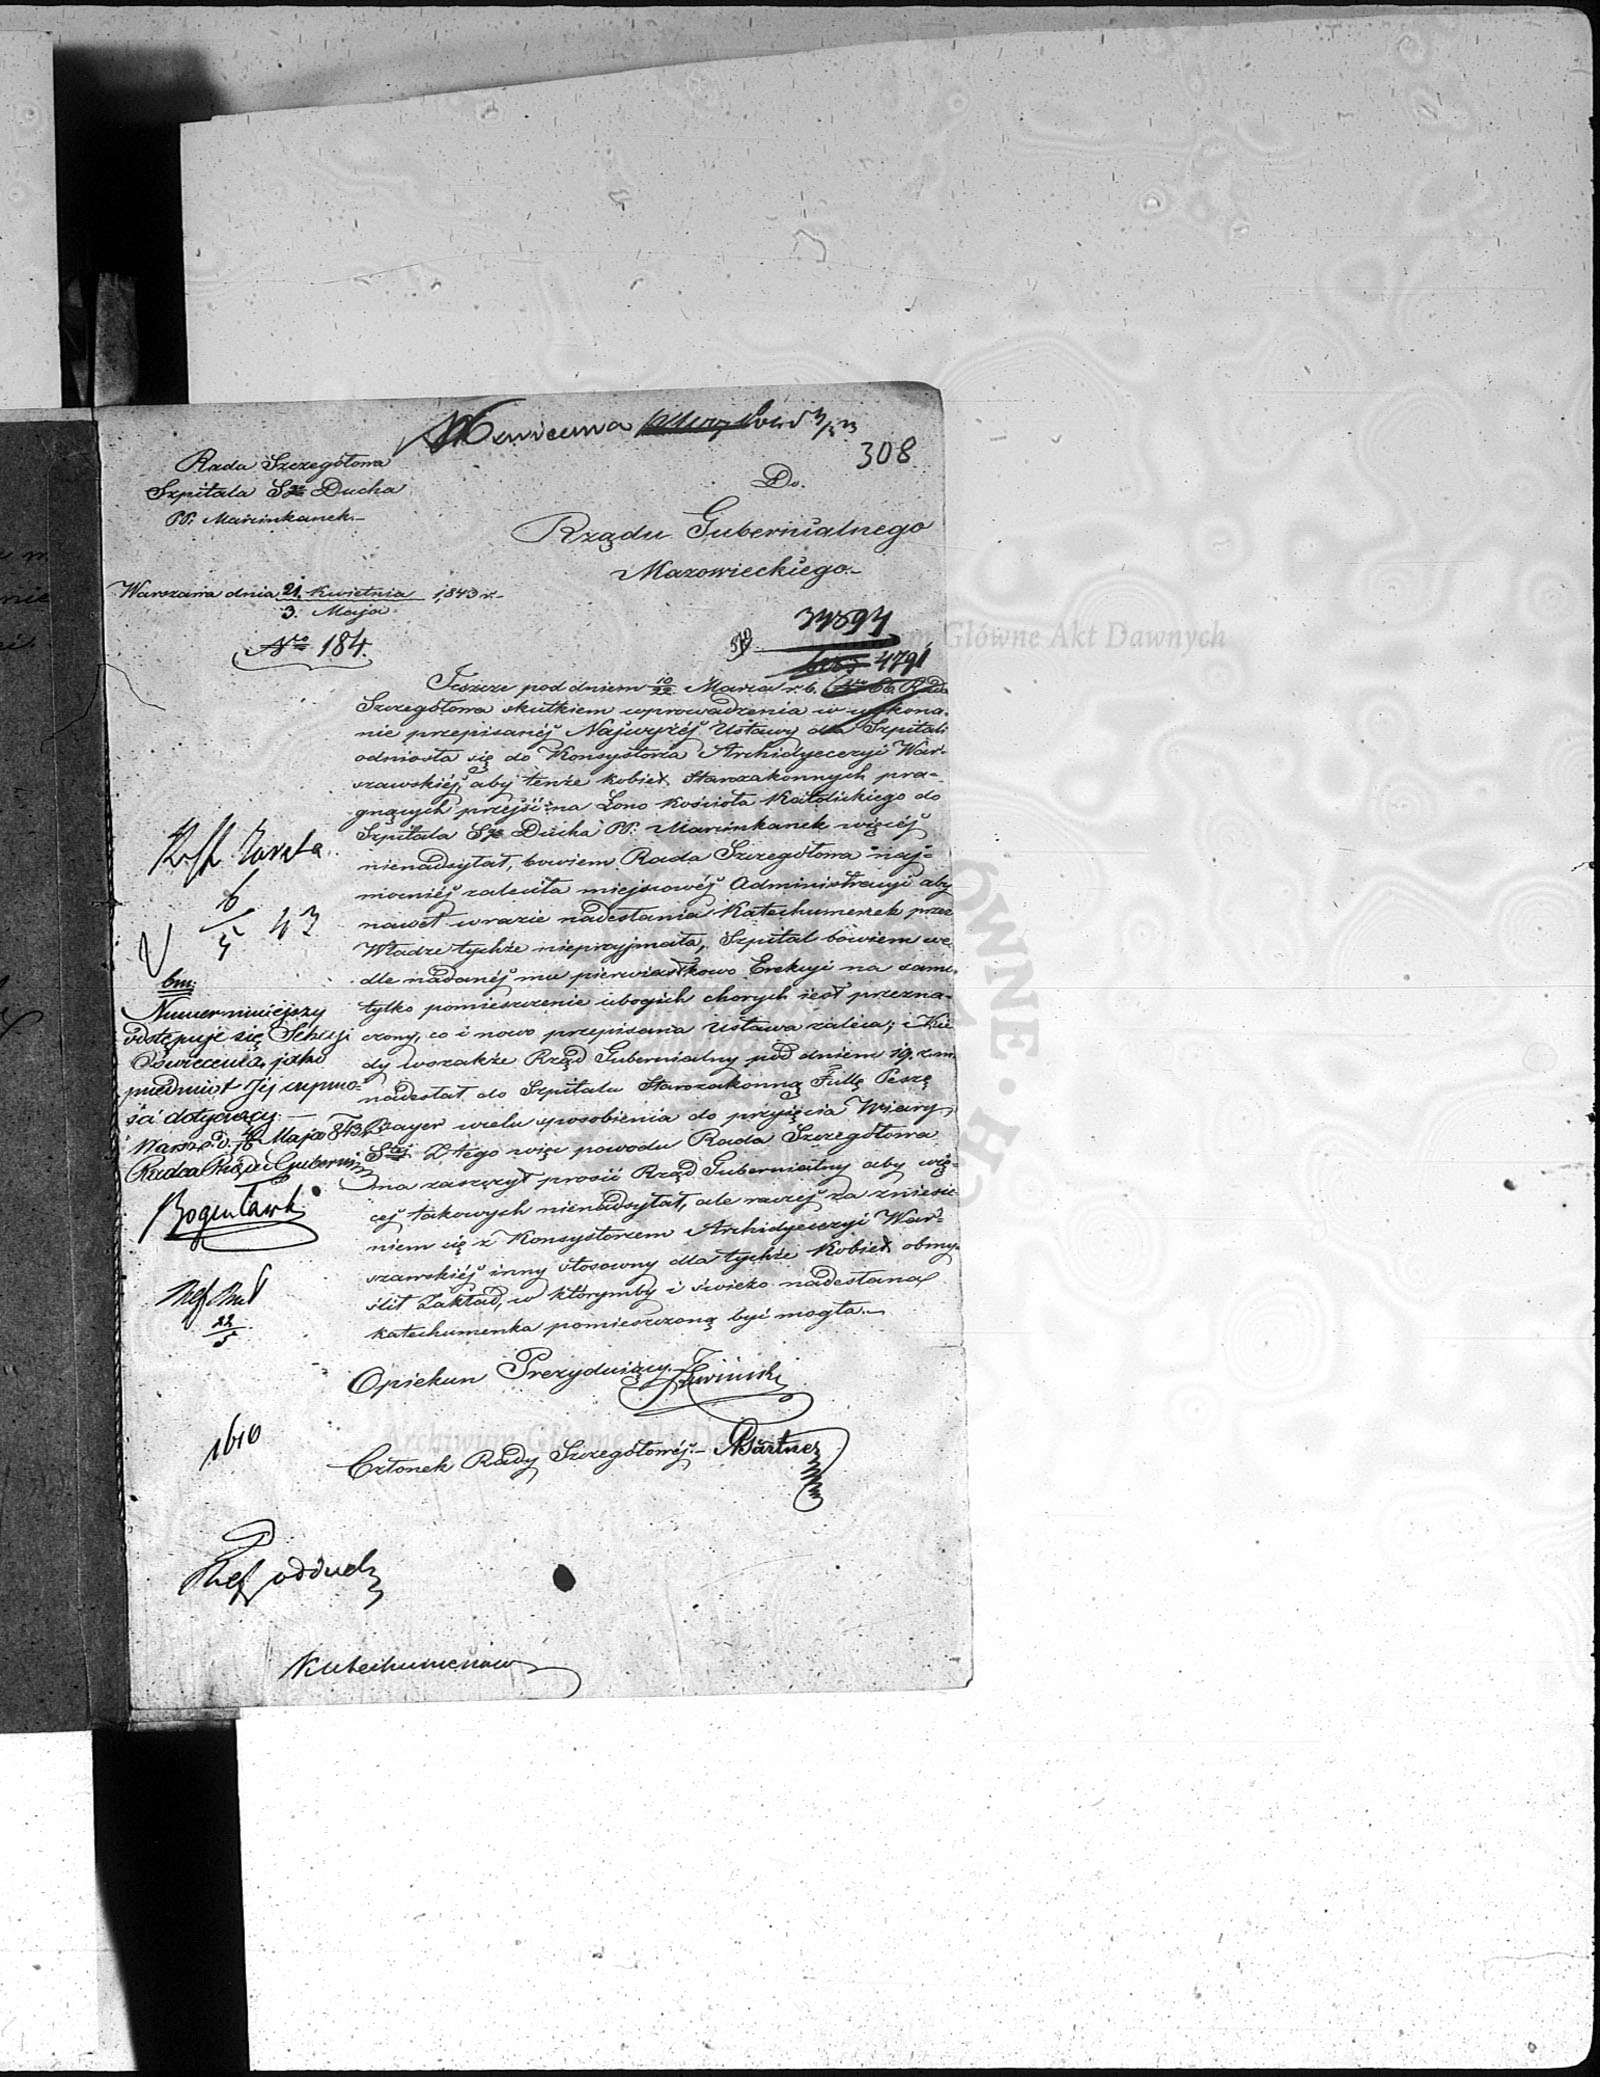 308
Rada Szczegółowa
Szpitala Sgo Ducha
PP: Marcinkanek.-
Do.
Rządu Gubernialnego
Mazowieckiego.-
Warszawa dnia 21. Kwietnia 1843 r.-
3. Maja
Nro 184.
34894
4791
Jeszcze pod dniem 10/22 Marca r. b. No 66 Rada
Szczegółowa skutkiem wprowadzenia w wykona-
nie przepisanéj Najwyżéj Ustawy dla Szpitali
odniosła się do Konsystorza Archidyecezyi War-
szawskiéj, aby tenże kobiet Starozakonnych pra-
gnących przejść na Łono Kościoła Katolickiego do
Szpitala Sgo Ducha PP: Marcinkanek więcéj
nienadsyłał, bowiem Rada Szczegółowa naj-
mocniéj zaleciła miejscowéj Administracyi aby
nawet w razie nadesłania Katechumenek przez
Władze tychże nieprzyjmała, Szpital bowiem we-
dle nadanéj mu pierwiastkowo Erekcyi na samo
tylko pomieszczenie ubogich chorych jest przezna-
czony, co i nowo przepisana Ustawa zaleca; Kie
dy wszakże Rząd Gubernialny pod dniem 19. z. m.
nadesłał do Szpitala Starozakonną Fullę Peszę
Bayer wcelu sposobienia do przyjęcia Wiary
Stéj Z tego więc powodu Rada Szczegółowa
ma zaszczyt prosić Rząd Gubernialny aby wię-
céj takowych nienadsyłał, ale raczéj za zniesie-
niem się z Konsystorzem Archidyecezyi War-
szawskiéj inny stosowny dla tychże Kobiet obmy-
ślił Zakład, w którymby i świeżo nadesłana
katechumenka pomieszczoną być mogła.-
6/5 43
bm:
Numer niniejszy
odstępuje się Sekcyi
Oświecenia, jako
przedmiot Jéj czynno-
ści dotyczący.-
Warsz. d. Maja 843
Radca Rządu Gubern
22/5
Opiekun Prezydujący
1610
Członek Rady Szczegółowéj.- Bartner
Katechumenów